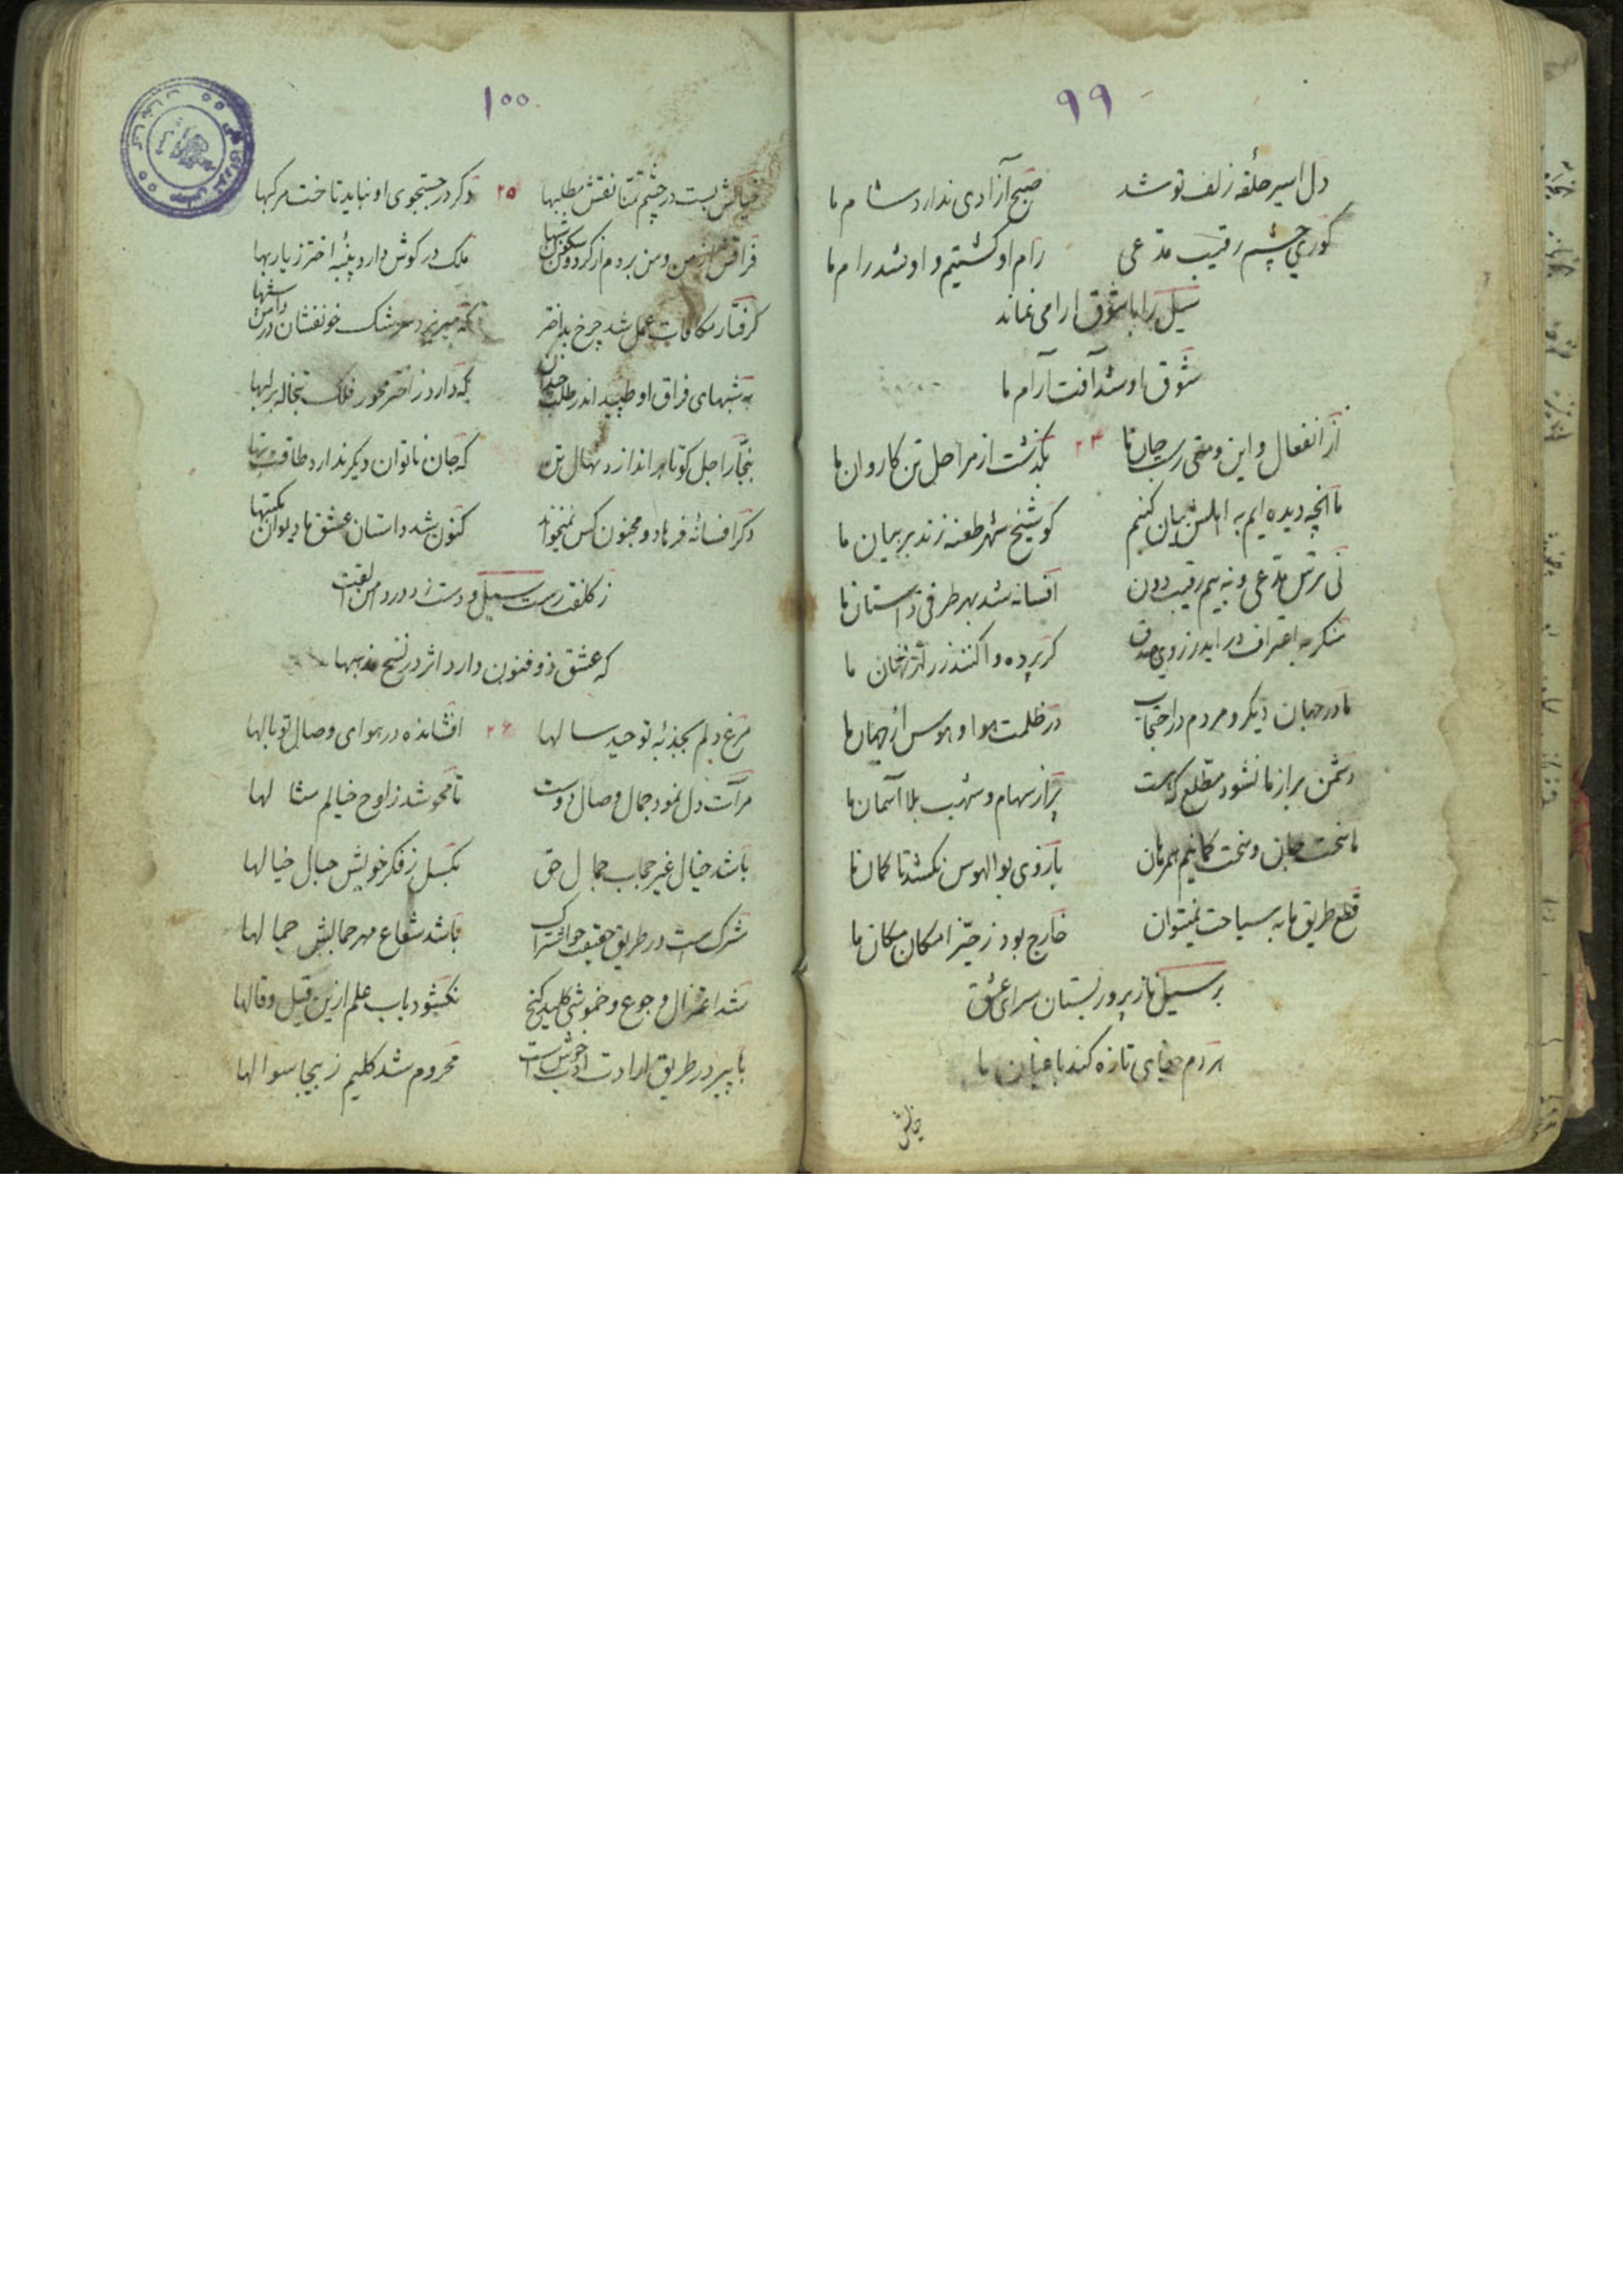 ۹۹
دل اسیر حلقه زلف تو شد صبح آزادی ندارد شام ما
کوری چشم رقیب مدعی رام او کشتیم و او شد رام ما
سیل را با شوق ارامی نماند
شوق او شد آفت آرام ما
از انفعال و این ومتی رست جان ما ۲۴ بگذشت از مراحل تن کاروان ما
ما آنچه دیده ایم به اهلش بیان کنیم کو شیخ شهر طعنه زند بر بیان ما
نی ترس مدعی و نه بیم رقیب دون افسانه شد بهر طرفی داستان ما
منکر به اعتراف در اید ز روی صدق کر پرده وا کنند ز راز نهان ما
ما در جهان دیکر و مردم در احتجاب در ظلمت هوا و هوس از جهان ما
دشمن براز ما نشود مطلع که هست پر از سهام و شهب بلا آسمان ما
ما سخت جان و سخت کمانیم همرهان بازوی بوالهوس نکشد تا کمان ما
قطع طریق ما به سیاحت نمیتوان خارج بود ز حیز امکان مکان ما
بر سیل ناز پرور بستان سرای عشق
هر دم جفای تازه کند باغبان ما
خیالش
۱۰۰
خیالش بست در چشم تمنا نقش مطلبها ۲۵ دکر در جستجوی او نباید تاخت مرکبها
فراقش از من و من بردم از کردون سکون شبها ملک در کوش دارد پنبه اختر ز یاربها
کرفتار مکافات عمل شد چرخ بد اختر که میریزد سرشک خونفشان در دامن شبها
به شبهای فراق او طپید اندر طلب چندان که دارد ز اختر محور فلک تبخاله بر لبها
بنجار اجل کو تا بر اندازد نهال تن که جان ناتوان دیکر ندارد طاقت تبها
دکر افسانهٔ فرهاد و مجنون کس نمیخواند کنون شد داستان عشق ما دیوان مکتبها
ز کلفت رست سیل و دست زد در دامن الفت
که عشق ذوفنون دارد اثر در نسخ مذهبها
مرغ دلم بجذبهٔ توحید سالها ۲۶ افشانده در هوای وصال تو بالها
مرآت دل نمود جمال وصال دوست تا محو شد ز لوح خیالم مثالها
باشد خیال غیر حجاب جمال حق بکسل ز فکر خویش حبال خیالها
شرک است در طریق حقیقت جو اشتراک باشد شعاع مهر جمالش جمالها
شد اعتزال و جوع و خموشی کلید کنج نکشود باب علم ازین قیل و قالها
با پیر در طریق ارادت ادب خوش است محروم شد کلیم ز بیجا سوالها